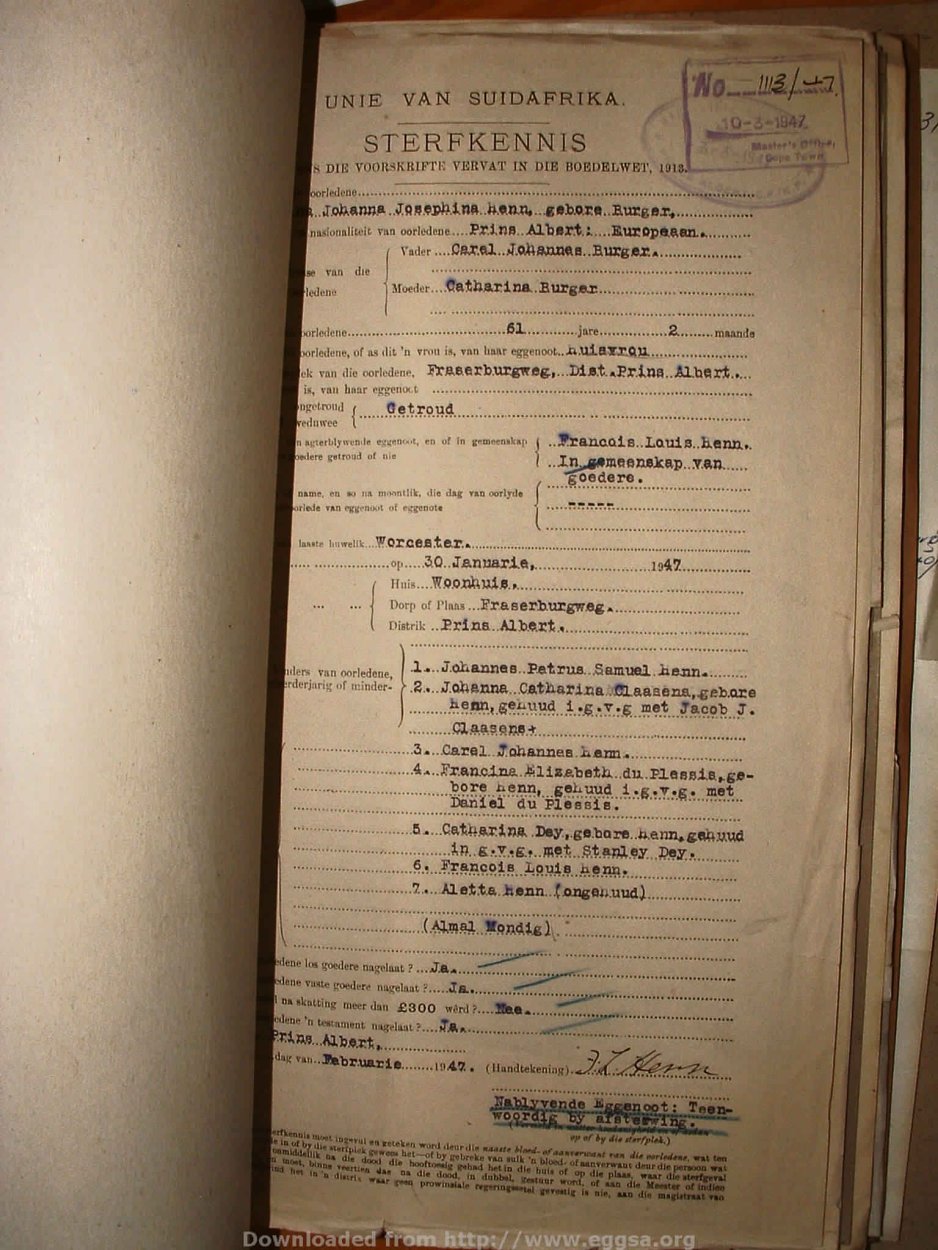 No. 1113/47.
10-3-1947
Master's Office,
Cape Town
UNIE VAN SUIDAFRIKA.
STERFKENNIS
S DIE VOORSKRIFTE VERVAT IN DIE BOEDELWET, 1913.
oorledene
Johanna Josephina Henn, gebore Burger,
nasionaliteit van oorledene Prins Albert: Europeaan.
Vader Carel Johannes Burger.
se van die
rledene
Moeder Catharina Burger
oorledene 61 jare 2 maande
oorledene, of as dit 'n vrou is, van haar eggenoot Huisvrou
ek van die oorledene, Fraserburgweg, Dist. Prins Albert.
is, van haar eggenoot
ongetroud Getroud
weduwee
n agterblywende eggenoot, en of in gemeenskap Francois Louis Henn.
oedere getroud of nie In gemeenskap van
goedere.
name, en so na moontlik, die dag van oorlyde
orlede van eggenoot of eggenote -----
laaste huwelik Worcester.
op 30 Januarie, 1947
Huis Woonhuis.
Dorp of Plaas Fraserburgweg.
Distrik Prins Albert.
nders van oorledene, 1. Johannes Petrus Samuel Henn.
erderjarig of minder- 2. Johanna Catharina Claasens, gebore
Henn, gehuud i.g.v.g met Jacob J.
Claasens+
3. Carel Johannes Henn.
4. Francina Elizabeth du Plessis, ge-
bore Henn, gehuud i.g.v.g. met
Daniel du Plessis.
5. Catharina Dey, gebore Henn, gehuud
in g.v.g. met Stanley Dey.
6. Francois Louis Henn.
7. Aletta Henn (ongehuud)
(Almal Mondig)
edene los goedere nagelaat? Ja.
edene vaste goedere nagelaat? Ja.
l na skatting meer dan £300 wêrd? Nee.
edene 'n testament nagelaat? Ja.
Prins Albert,
dag van Februarie 1947. (Handtekening) F. L. Henn
Nablyvende Eggenoot: Teen-
woordig by afsterwing.
op of by die sterfplek.)
erfkennis moet ingevul en geteken word deur die naaste bloed- of aanverwant van die oorledene, wat ten
le in of by die sterfplek gewees het—of by gebreke van sulk 'n bloed- of aanverwant deur die persoon wat
onmiddellik na die dood die hooftoesig gehad het in die huis of op die plaas, waar die sterfgeval
n moet, binne veertien dae na die dood, in dubbel, gestuur word, of aan die Meester of indien
ind het in 'n distrik waar geen provinsiale regeringsetel gevestig is nie, aan die magistraat van
Downloaded from http://www.eggsa.org